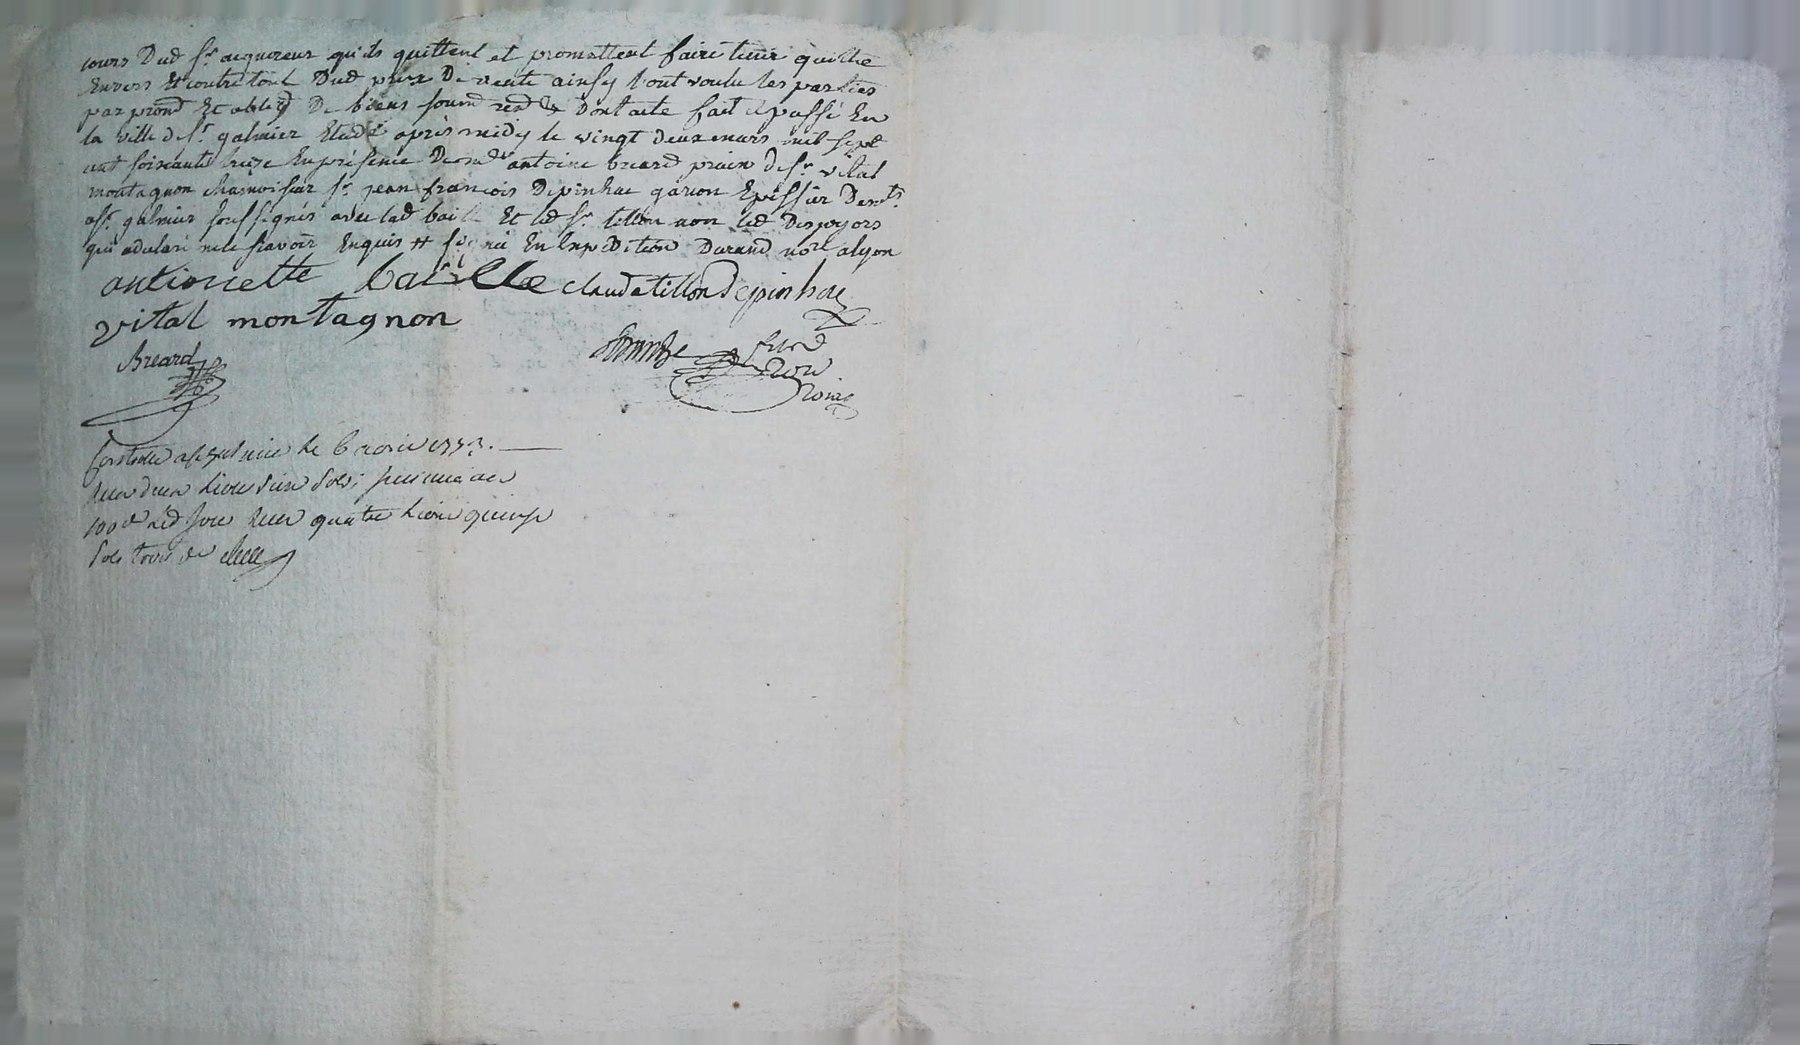 cours Dud Sr. acquereur qu'ils quittent et promettent faire tenir quitte
Envers Et contre tout Dud prix De vente ainsy l'ont voulu les parties
par promd Et obligd De biens soumd rend & Dont acte fait & passé En
la ville de st. galmier Etude après midy le vingt deux mars mil sept
cent soixante treize En présence De antoine breard sr. vital
montagnon chamoiseur sr. jean françois Depinhac garcon Epissier
a st. galmier soussignés avec lad baille Et led sr. tillon non led Desjoyors
qui a declaré ne le scavoir Enquis # signé En Expedition Durand nore alyon
antionette baille claude tillon Depinhac
vital montagnon
Breard
Controllé a st galmier le 6 1773.
livre sols
100e Led jour Receu quatre Livres quinze
sols trois de